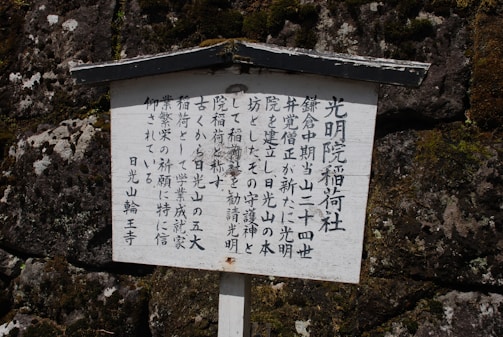 光明院稲荷社
鎌倉中期当山二十四世
弁覚僧正が新たに光明
院を建立し日光山の本
坊としたその守護神と
して稲荷神を勧請光明
院稲荷と称す
古くから日光山の五大
稲荷として学業成就家
業繁栄の祈願に特に信
仰されている
日光山輪王寺